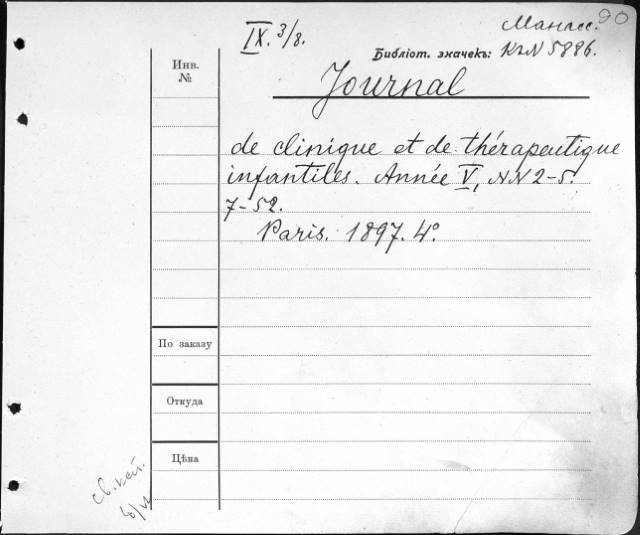 90
IX. 3/8.
Манасс.
Библіот. значекъ: К2N 5886.
Инв.
№
Journal
de clinique et de thérapeutique
infantiles. Année V, NN 2-5.
7-52.
Paris. 1897. 4°
По заказу
Откуда
Цѣна